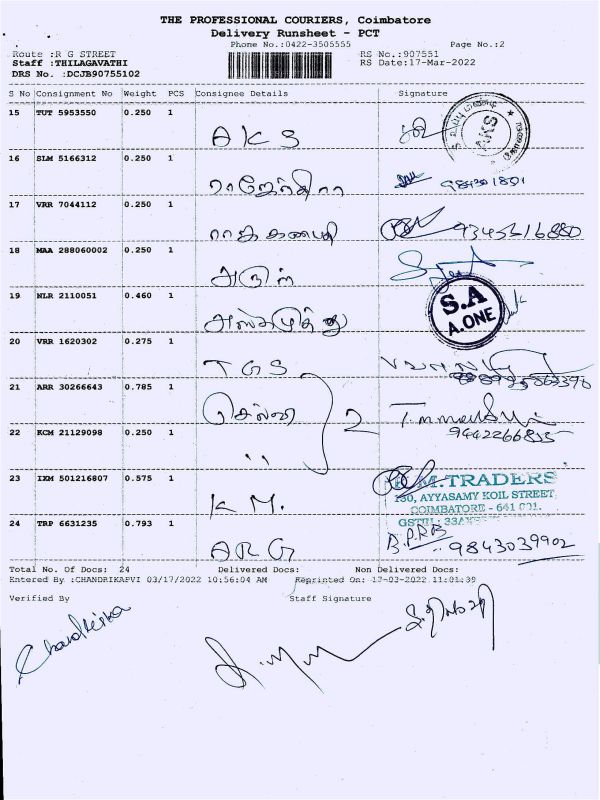 THE PROFESSIONAL COURIERS, Coimbatore
Delivery Runsheet - PCT
Phone No.:0422-3505555 Page No.:2
Route :R G STREET RS No.:907551
Staff :THILAGAVATHI RS Date:17-Mar-2022
DRS No. :DCJB90755102
S No Consignment No Weight PCS Consignee Details Signature
15 TUT 5953550 0.250 1
AKS
16 SLM 5166312 0.250 1
17 VRR 7044112 0.250 1
ராஜ கணபதி
18 MAA 288060002 0.250 1
அருள்
19 NLR 2110051 0.460 1
S.A
A.ONE
20 VRR 1620302 0.275 1
TGS
21 ARR 30266643 0.785 1
செல்வி 2
22 KCM 21129098 0.250 1
9442266815
〃
23 IXM 501216807 0.575 1
K M.
M.TRADERS
130, AYYASAMY KOIL STREET,
COIMBATORE - 641 001.
24 TRP 6631235 0.793 1
ARG
B.P.R.B 9843039902
Total No. Of Docs: 24 Delivered Docs: Non Delivered Docs:
Entered By :CHANDRIKAPVI 03/17/2022 10:56:04 AM Reprinted On: 17-03-2022 11:01:39
Verified By Staff Signature
Chandrika